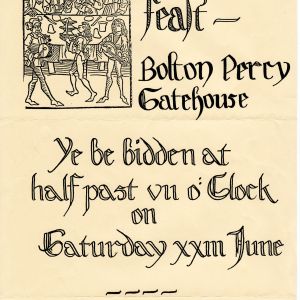 feast —
Bolton Percy
Gatehouse
Ye be bidden at
half past vii o'Clock
on
Saturday xxiii June